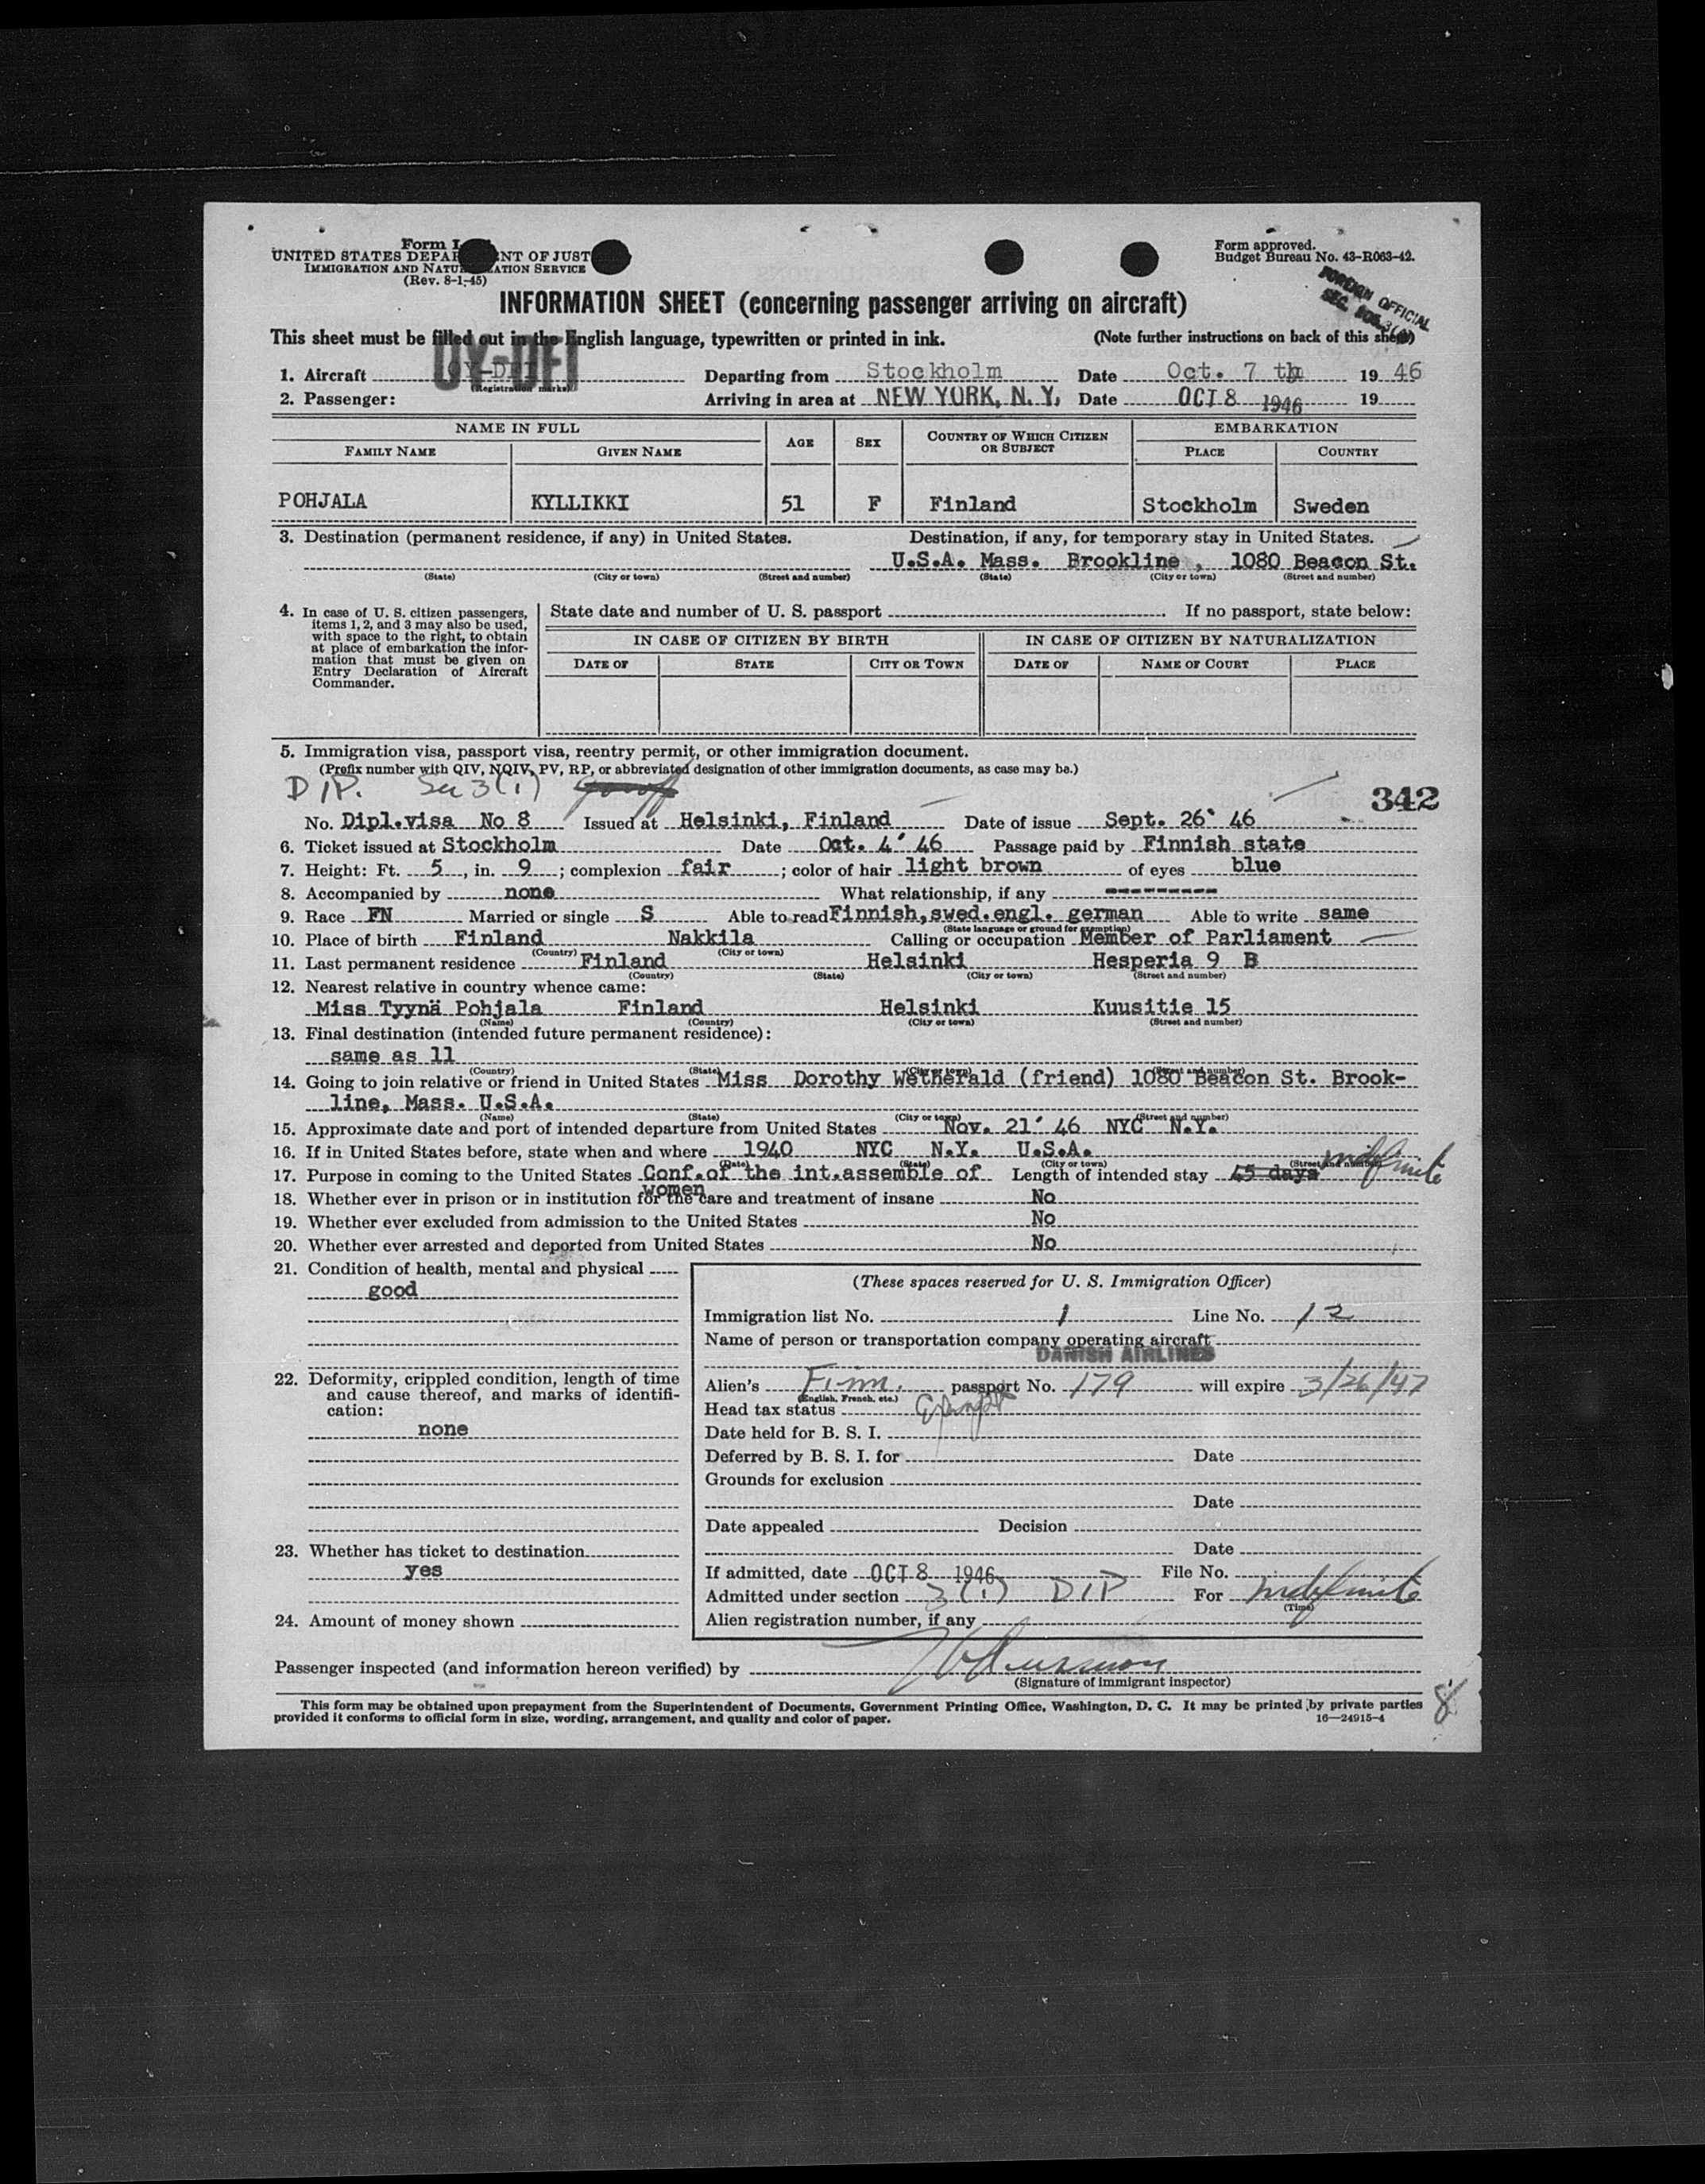 Form I
UNITED STATES DEPAR NT OF JUST
IMMIGRATION AND NATU ATION SERVICE
(Rev. 8-1-45)
Form approved.
Budget Bureau No. 43-R063-42.
FOREIGN OFFICIAL
INFORMATION SHEET (concerning passenger arriving on aircraft)
This sheet must be filled out in the English language, typewritten or printed in ink. (Note further instructions on back of this sheet)
OY-DFI
1. Aircraft OY-DFI Departing from Stockholm Date Oct. 7 th 19 46
(Registration marks)
2. Passenger: Arriving in area at NEW YORK, N. Y. Date OCT 8 1946 19
NAME IN FULL AGE SEX COUNTRY OF WHICH CITIZEN OR SUBJECT EMBARKATION
FAMILY NAME GIVEN NAME PLACE COUNTRY
POHJALA KYLLIKKI 51 F Finland Stockholm Sweden
3. Destination (permanent residence, if any) in United States. Destination, if any, for temporary stay in United States.
U.S.A. Mass. Brookline , 1080 Beacon St.
(State) (City or town) (Street and number) (State) (City or town) (Street and number)
4. In case of U. S. citizen passengers, items 1, 2, and 3 may also be used, with space to the right, to obtain at place of embarkation the information that must be given on Entry Declaration of Aircraft Commander.
State date and number of U. S. passport If no passport, state below:
IN CASE OF CITIZEN BY BIRTH IN CASE OF CITIZEN BY NATURALIZATION
DATE OF STATE CITY OR TOWN DATE OF NAME OF COURT PLACE
5. Immigration visa, passport visa, reentry permit, or other immigration document.
(Prefix number with QIV, NQIV, PV, RP, or abbreviated designation of other immigration documents, as case may be.)
DIP. Sec 3(1)
342
No. Dipl.visa No 8 Issued at Helsinki, Finland Date of issue Sept. 26' 46
6. Ticket issued at Stockholm Date Oct. 4' 46 Passage paid by Finnish state
7. Height: Ft. 5, in. 9; complexion fair; color of hair light brown of eyes blue
8. Accompanied by none What relationship, if any ---------
9. Race FN Married or single S Able to read Finnish,swed.engl. german Able to write same
(State language or ground for exemption)
10. Place of birth Finland Nakkila Calling or occupation Member of Parliament
(Country) (City or town)
11. Last permanent residence Finland Helsinki Hesperia 9 B
(Country) (State) (City or town) (Street and number)
12. Nearest relative in country whence came:
Miss Tyynä Pohjala Finland Helsinki Kuusitie 15
(Name) (Country) (City or town) (Street and number)
13. Final destination (intended future permanent residence):
same as 11
(Country) (State) (City or town) (Street and number)
14. Going to join relative or friend in United States Miss Dorothy Wetherald (friend) 1080 Beacon St. Brook-
line, Mass. U.S.A.
(Name) (State) (City or town) (Street and number)
15. Approximate date and port of intended departure from United States Nov. 21' 46 NYC N.Y.
16. If in United States before, state when and where 1940 NYC N.Y. U.S.A.
(Date) (State) (City or town) (Street and number)
17. Purpose in coming to the United States Conf.of the int.assemble of women Length of intended stay 45 days indefinite
18. Whether ever in prison or in institution for the care and treatment of insane No
19. Whether ever excluded from admission to the United States No
20. Whether ever arrested and deported from United States No
21. Condition of health, mental and physical
good
22. Deformity, crippled condition, length of time and cause thereof, and marks of identification:
none
23. Whether has ticket to destination
yes
24. Amount of money shown
(These spaces reserved for U. S. Immigration Officer)
Immigration list No. 1 Line No. 12
Name of person or transportation company operating aircraft
DANISH AIRLINES
Alien's Finn. passport No. 179 will expire 3/26/47
(English, French, etc.)
Head tax status Exempt
Date held for B. S. I.
Deferred by B. S. I. for Date
Grounds for exclusion
Date
Date appealed Decision
Date
If admitted, date OCT 8 1946 File No.
Admitted under section 3(1) DIP For indefinite
(Time)
Alien registration number, if any
Passenger inspected (and information hereon verified) by
(Signature of immigrant inspector)
This form may be obtained upon prepayment from the Superintendent of Documents, Government Printing Office, Washington, D. C. It may be printed by private parties
provided it conforms to official form in size, wording, arrangement, and quality and color of paper. 16—24915-4
8